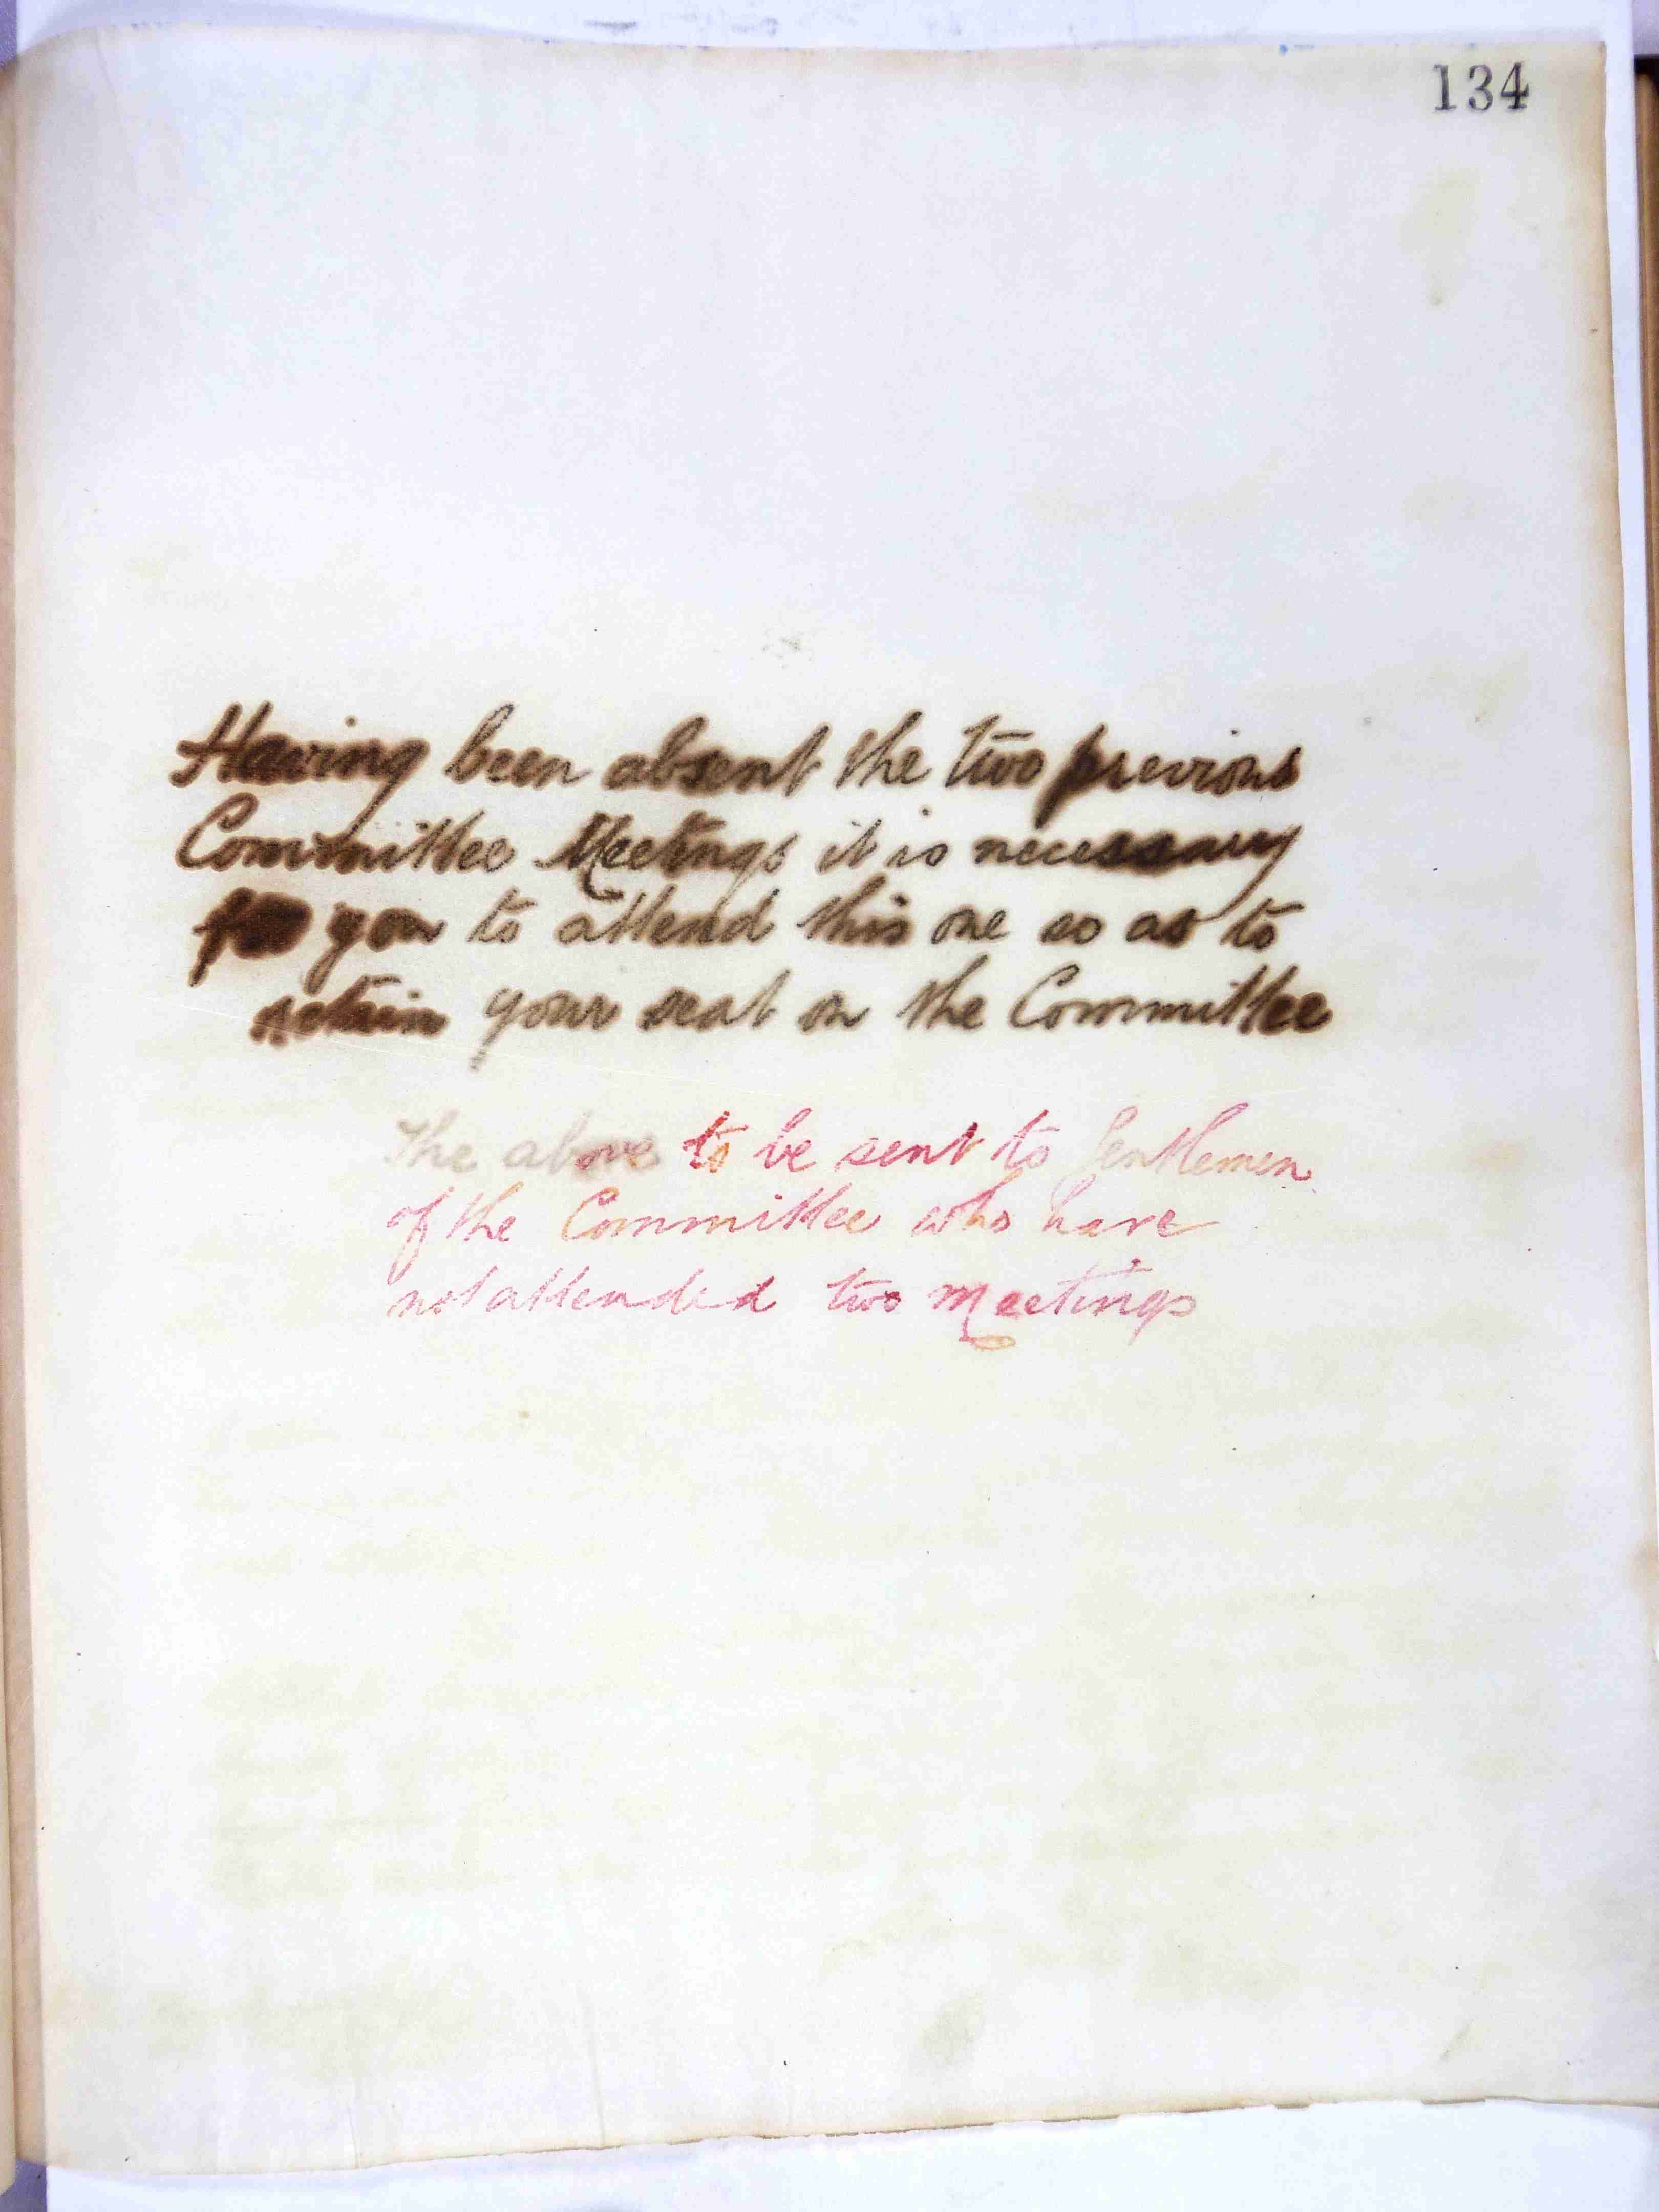 134
Having been absent the two previous
Committee Meetings it is necessary
for you to attend this one so as to
retain your seat on the Committee
The above to be sent to Gentlemen
of the Committee who have
not attended two Meetings